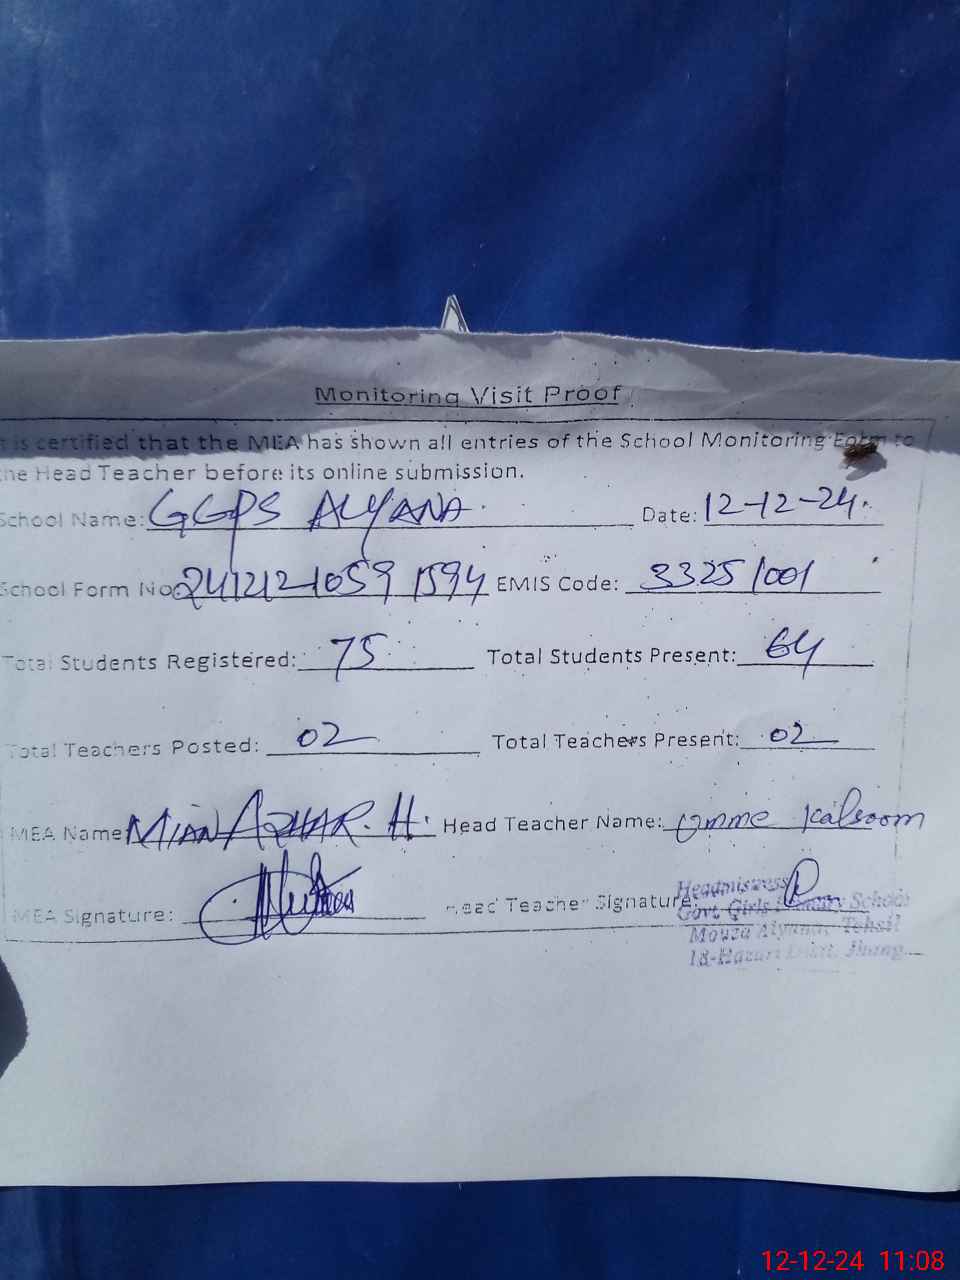 Monitoring Visit Proof
t is certified that the MEA has shown all entries of the School Monitoring Form to
the Head Teacher before its online submission.
School Name: GGPS ALYANA Date: 12-12-24
School Form No: 241212-1059 1594 EMIS Code: 33251001
Total Students Registered: 75 Total Students Present: 64
Total Teachers Posted: 02 Total Teachers Present: 02
MEA Name MIAN AZHAR. H. Head Teacher Name: Umme Kalsoom
MEA Signature: Head Teacher Signature:
Headmistress
Govt. Girls Primary School
Mouza Alyana, Tehsil
18-Hazari Distt. Jhang
12-12-24 11:08